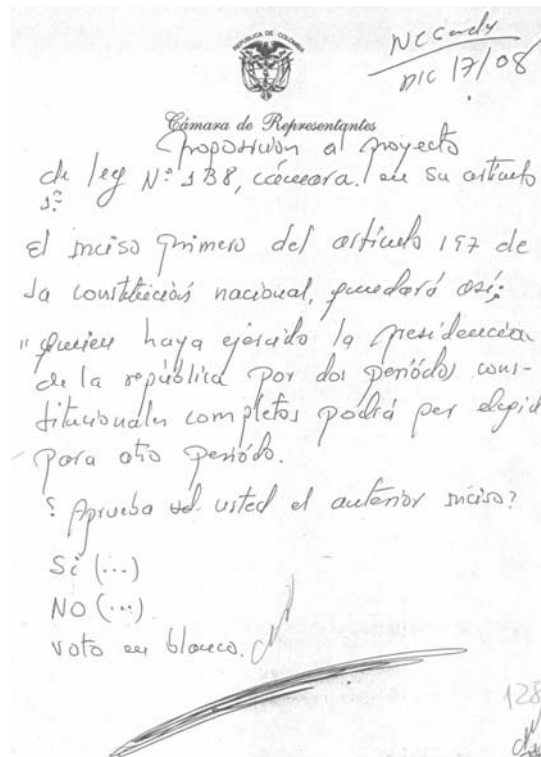 REPUBLICA DE COLOMBIA
DIC 17/08
Cámara de Representantes
proposición al proyecto
de ley Nº 138, cámara. en su artículo
1º
El inciso primero del artículo 197 de
la constitución nacional, quedará así:
"quien haya ejercido la presidencia
de la república por dos periódos cons-
titucionales completos podrá per elegid
para otro periódo.
¿Aprueba usted el anterior inciso?
Si (...)
NO (...)
Voto en blanco.
128